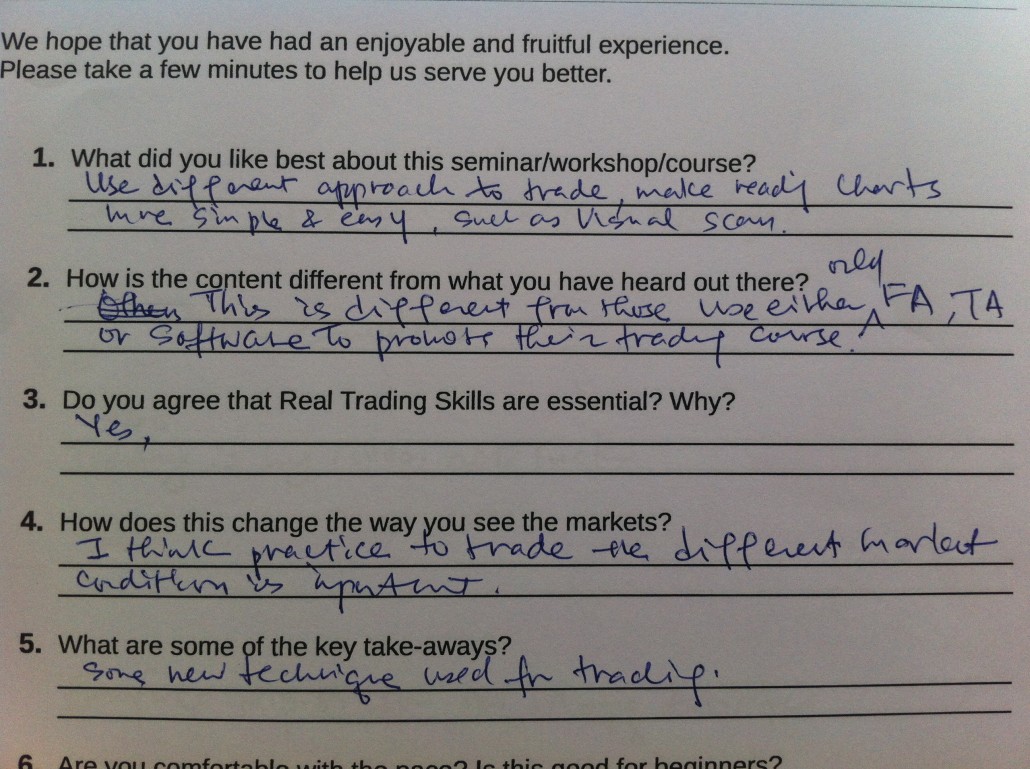 We hope that you have had an enjoyable and fruitful experience.
Please take a few minutes to help us serve you better.
1. What did you like best about this seminar/workshop/course?
Use different approach to trade, make ready charts
more simple & easy, such as Visual scan.
2. How is the content different from what you have heard out there?
only
This is different from those use either FA, TA
or software to promote their trading course.
3. Do you agree that Real Trading Skills are essential? Why?
Yes,
4. How does this change the way you see the markets?
I think practice to trade the different market
condition is important.
5. What are some of the key take-aways?
Some new technique used for trading.
6. Are you comfortable with the pace? Is this good for beginners?